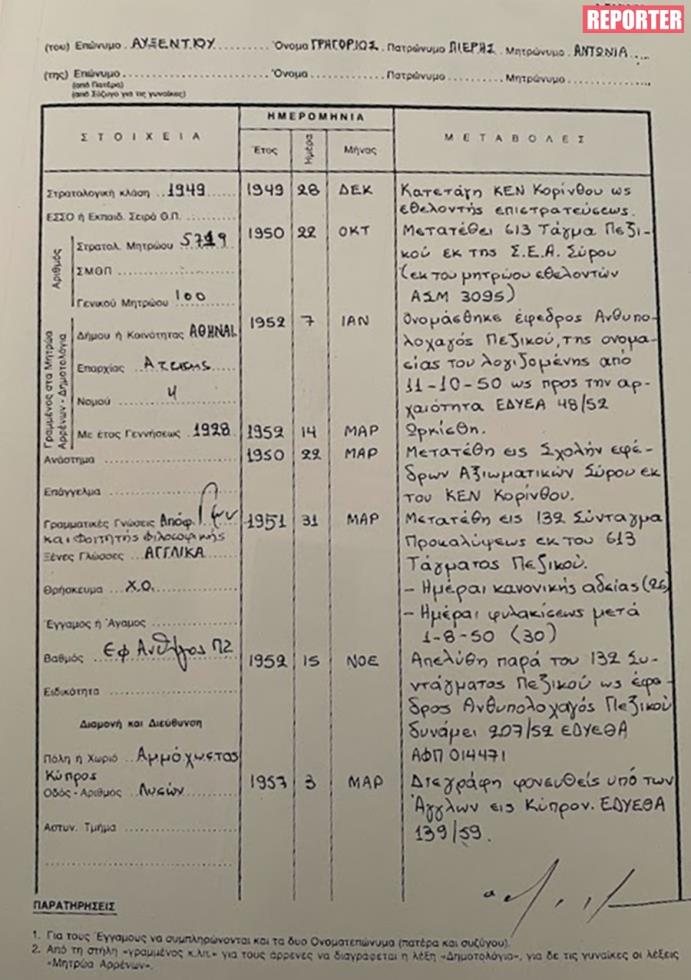 REPORTER
(του) Επώνυμο ΑΥΞΕΝΤΙΟΥ Όνομα ΓΡΗΓΟΡΙΟΣ Πατρώνυμο ΠΙΕΡΗΣ Μητρώνυμο ΑΝΤΩΝΙΑ
(της) Επώνυμο Όνομα Πατρώνυμο Μητρώνυμο
(από Πατέρα)
(από Σύζυγο για τις γυναίκες)
ΣΤΟΙΧΕΙΑ
ΗΜΕΡΟΜΗΝΙΑ
Έτος Ημέρα Μήνας
ΜΕΤΑΒΟΛΕΣ
Στρατολογική κλάση 1949
ΕΣΣΟ ή Εκπαιδ. Σειρά Θ.Π.
Αριθμός
Στρατολ. Μητρώου 5719
ΣΜΘΠ
Γενικού Μητρώου 100
Γραμμένος στα Μητρώα
Αρρένων - Δημοτολόγια
Δήμου ή Κοινότητας ΑΘΗΝΑΙ
Επαρχίας Αττικης
Νομού 4
Με έτος Γεννήσεως 1928
Ανάστημα
Επάγγελμα
Γραμματικές Γνώσεις Απόφ. Γυμν
και Φοιτητής Φιλοσοφικής
Ξένες Γλώσσες ΑΓΓΛΙΚΑ
Θρήσκευμα Χ.Ο.
Έγγαμος ή Άγαμος
Βαθμός Εφ Ανθ/γος ΠΖ
Ειδικότητα
Διαμονή και Διεύθυνση
Πόλη ή Χωριό Αμμόχωστος
Κύπρος
Οδός - Αριθμός Λυσών
Αστυν. Τμήμα
1949 28 ΔΕΚ Κατετάγη ΚΕΝ Κορίνθου ως
εθελοντής επιστρατεύσεως.
1950 22 ΟΚΤ Μετατέθει 613 Τάγμα Πεζι-
κού εκ της Σ.Ε.Α. Σύρου
(εκ του μητρώου εθελοντών
ΑΣΜ 3095)
1952 7 ΙΑΝ Ονομάσθηκε έφεδρος Ανθυπο-
λοχαγός Πεζικού, της ονομα-
σίας του λογιζομένης από
11-10-50 ως προς την αρ-
χαιότητα ΕΔΥΕΑ 48/52
1952 14 ΜΑΡ Ωρκίσθη.
1950 22 ΜΑΡ Μετατέθη εις Σχολήν εφέ-
δρων Αξιωματικών Σύρου εκ
του ΚΕΝ Κορίνθου.
1951 31 ΜΑΡ Μετατέθη εις 132 Σύνταγμα
Προκαλύψεως εκ του 613
Τάγματος Πεζικού.
- Ημέραι κανονικής αδείας (26)
- Ημέραι φυλακίσεως μετά
1-8-50 (30)
1952 15 ΝΟΕ Απελύθη παρά του 132 Συ-
ντάγματος Πεζικού ως έφε-
δρος Ανθυπολοχαγός Πεζικού
δυνάμει 207/52 ΕΔΥΕΘΑ
ΑΦΠ 014471
1957 3 ΜΑΡ Διεγράφη φονευθείς υπό των
Άγγλων εις Κύπρον. ΕΔΥΕΘΑ
139/59.
ΠΑΡΑΤΗΡΗΣΕΙΣ
1. Για τους Έγγαμους να συμπληρώνονται και τα δυο Ονοματεπώνυμα (πατέρα και συζύγου).
2. Από τη στήλη «γραμμένος κ.λπ.» για τους άρρενες να διαγράφεται η λέξη «Δημοτολόγια», για δε τις γυναίκες οι λέξεις
«Μητρώα Αρρένων».